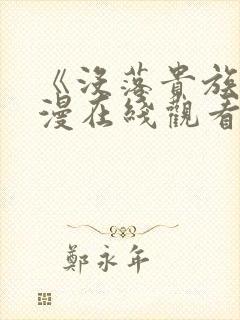 《沒落貴族
漫在綫觀看
鄭永年